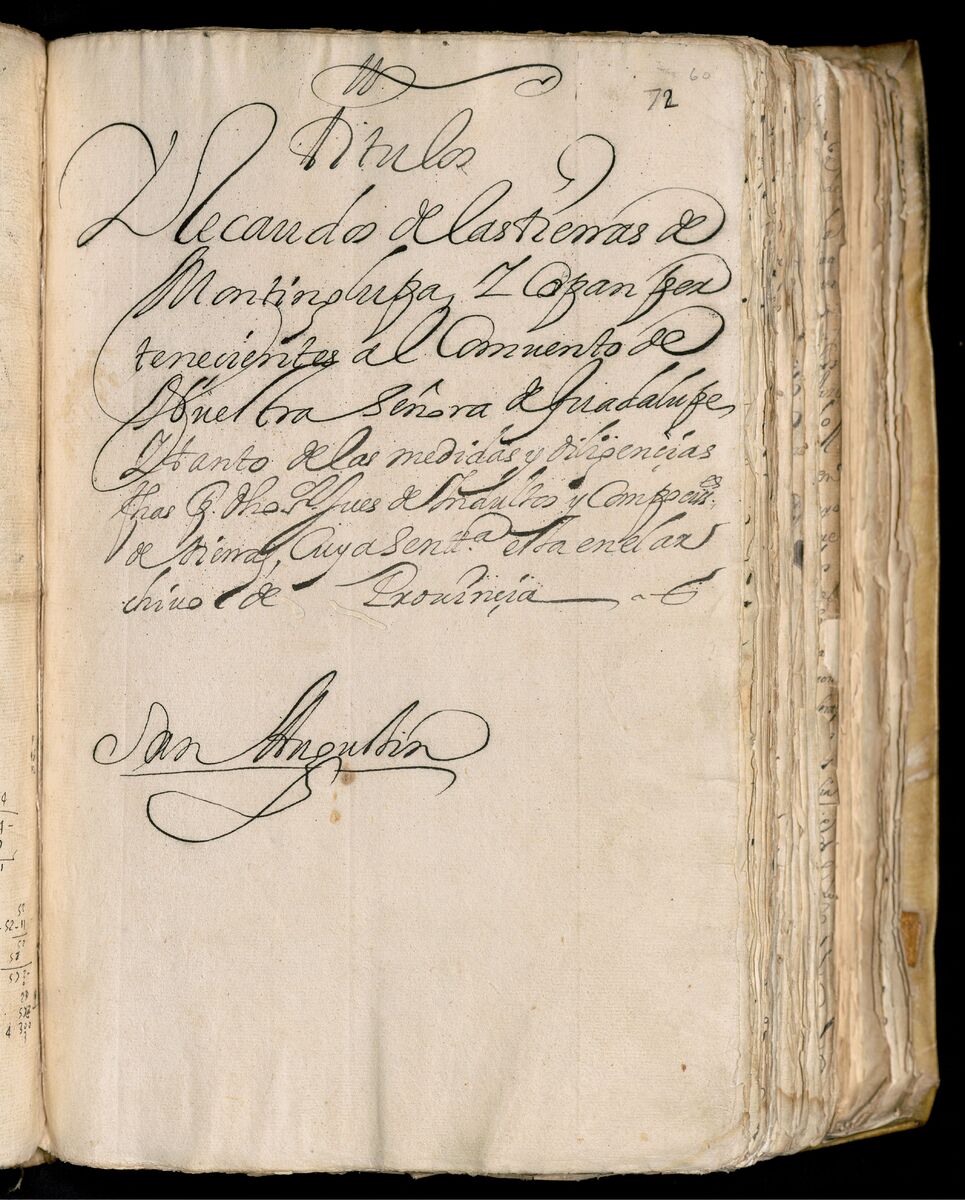 60
72
Titulos
Y Recaudos de las tierras de
Montinglupa, Y Cazan per
tenecientes al Comuento de
Nuestra Señora de Guadalupe,
Y tanto de las medidas y diligencias
fhas P. dho Sr. Jues de Indultos y Compocis.es
de tierras, Cuya Sent.a esta en el ar
chiuo de Prouincia
San Augustin